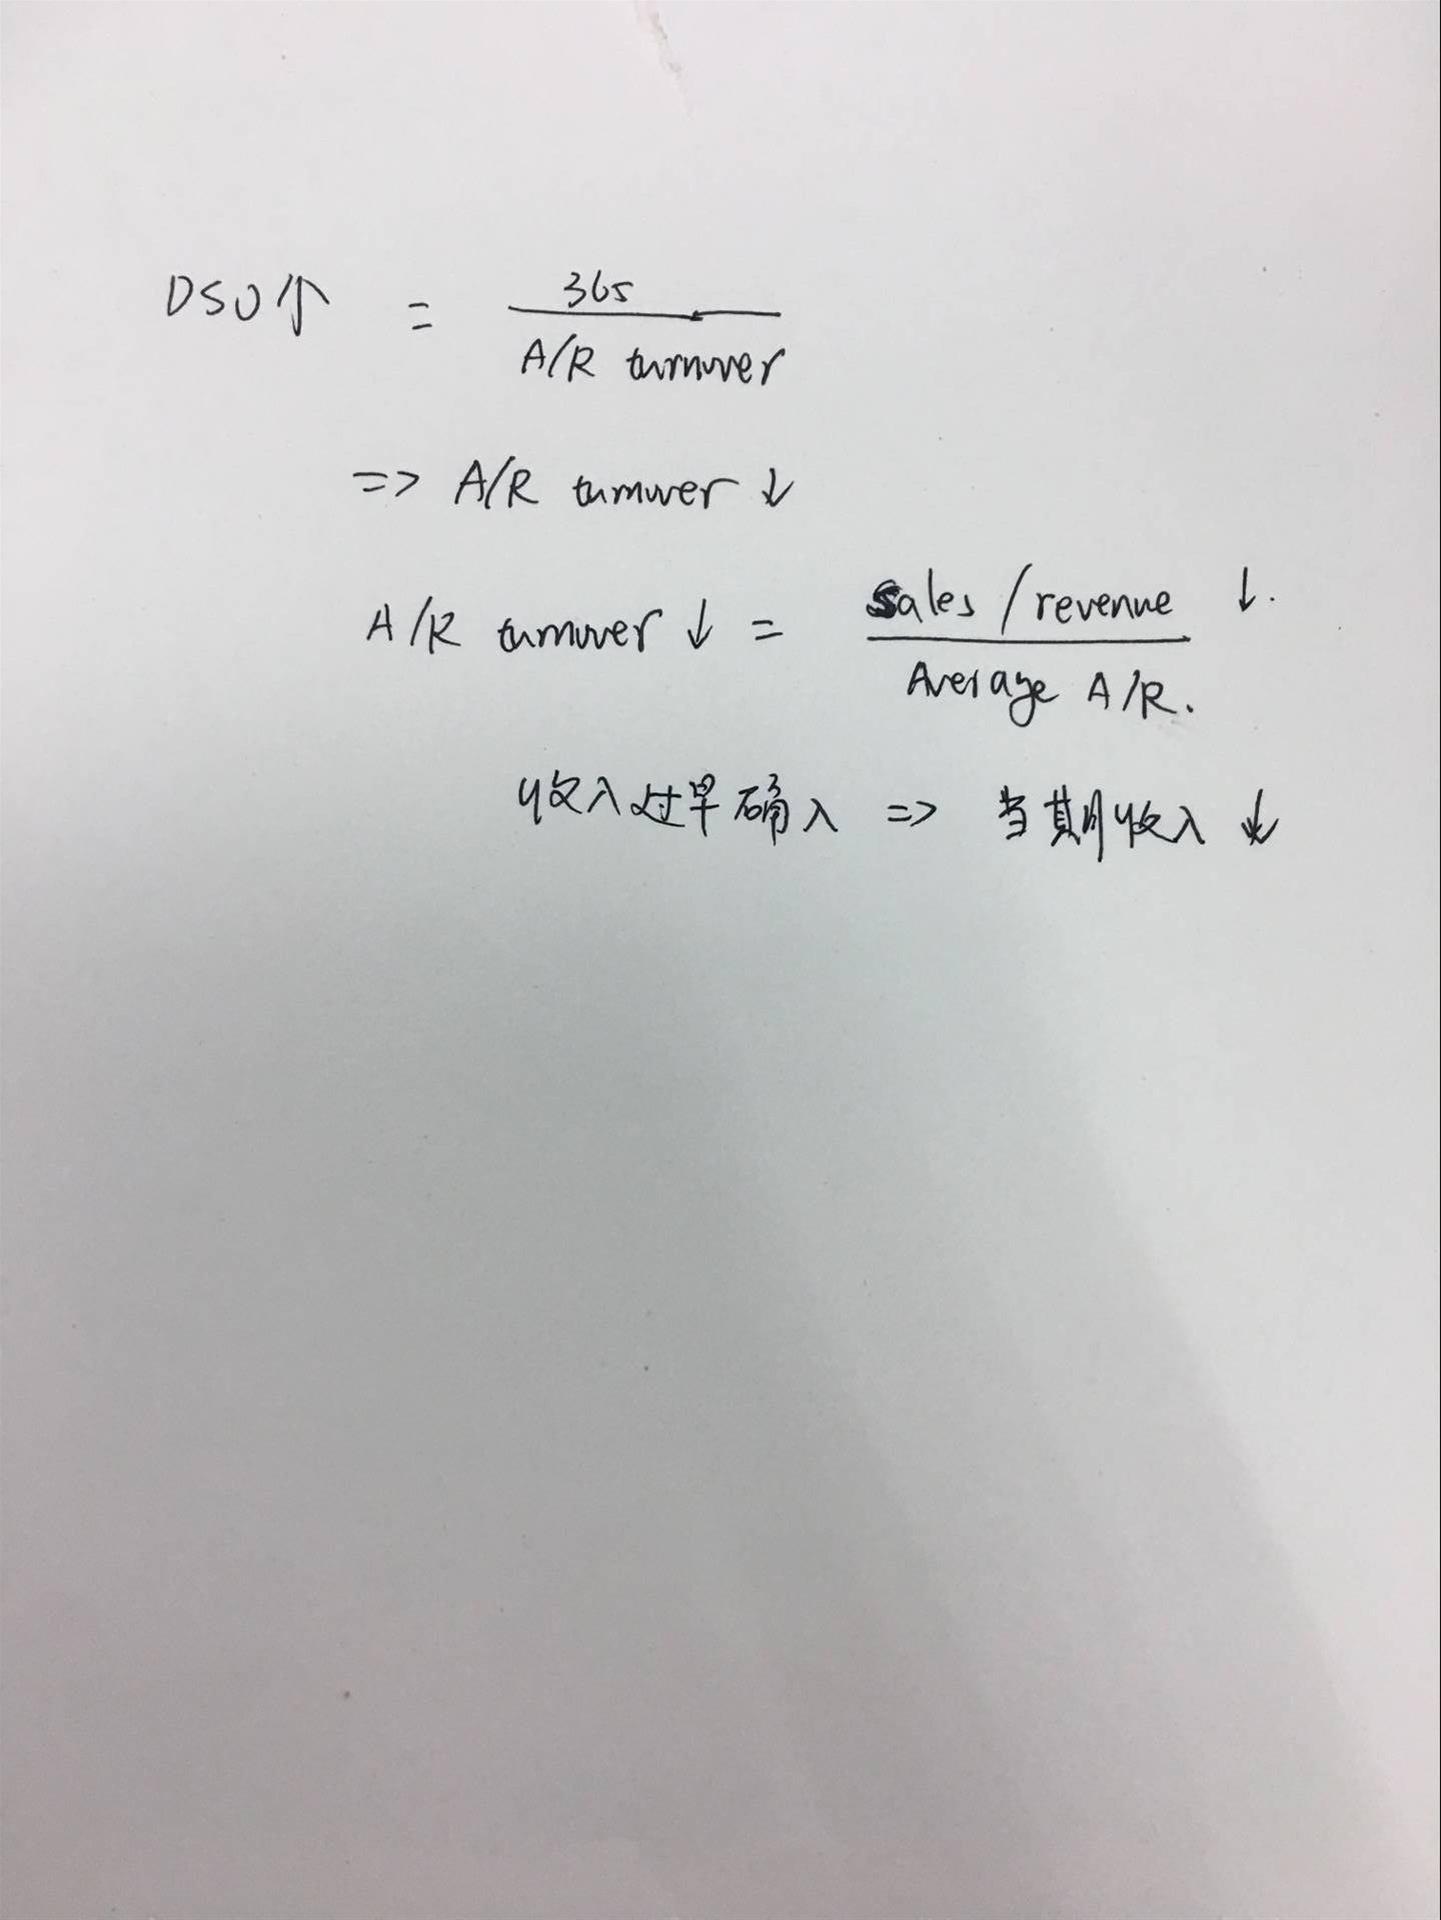 DSO↑ = 365 / A/R turnover
=> A/R turnover ↓
A/R turnover ↓ = sales/revenue ↓. / Average A/R.
收入过早确入 => 当期收入 ↓